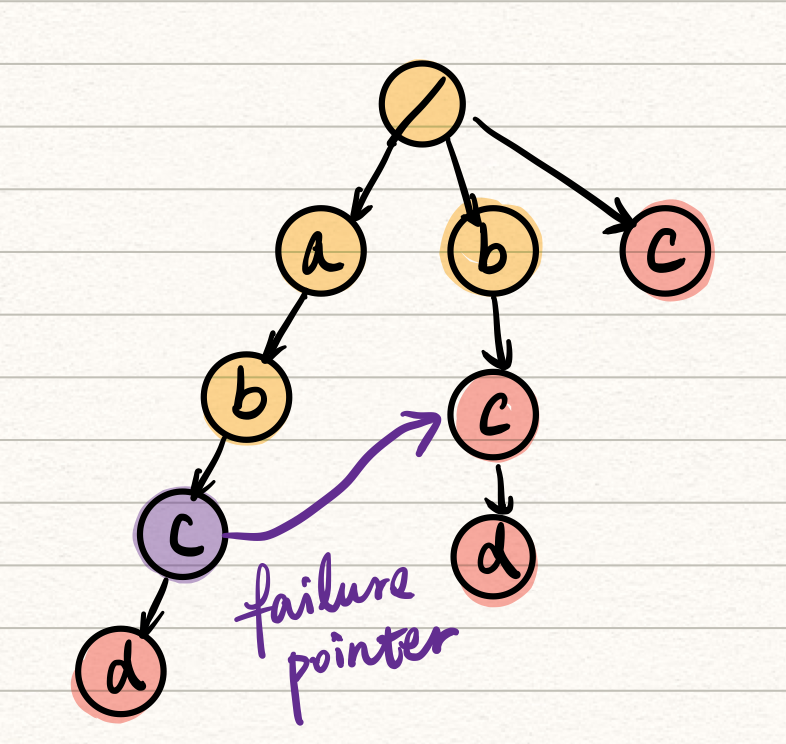 /
a b c
b
c
c
d
failure
pointer
d